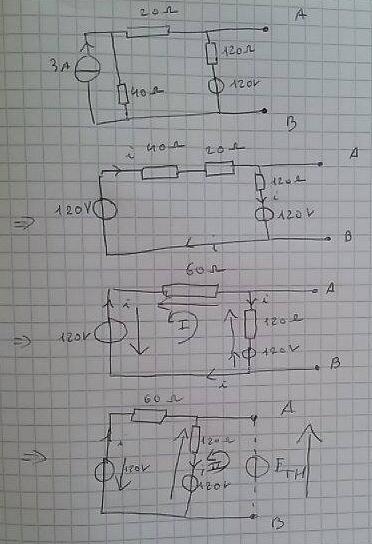 20Ω
A
3A
120Ω
120V
40Ω
B
i
40Ω
20Ω
A
120Ω
i
120V
120V
i
B
⇒
60Ω
i
A
i
I
120Ω
120V
120V
i
B
⇒
60Ω
A
i
120Ω
II
120V
120V
E_TH
B
⇒